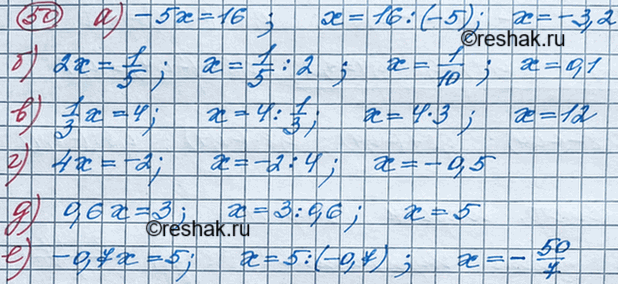 50 а) -5x=16; x=16:(-5); x=-3,2
©reshak.ru
б) 2x=1/5; x=1/5:2; x=1/10; x=0,1
в) 1/3x=4; x=4:1/3; x=4·3; x=12
г) 4x=-2; x=-2:4; x=-0,5
д) 0,6x=3; x=3:0,6; x=5
©reshak.ru
е) -0,7x=5; x=5:(-0,7); x=-50/7